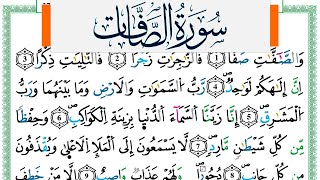 سورة الصافات
وَٱلصَّٰٓفَّٰتِ صَفًّا ۝١ فَٱلزَّٰجِرَٰتِ زَجْرًا ۝٢ فَٱلتَّٰلِيَٰتِ ذِكْرًا ۝٣
إِنَّ إِلَٰهَكُمْ لَوَٰحِدٌ ۝٤ رَّبُّ ٱلسَّمَٰوَٰتِ وَٱلْأَرْضِ وَمَا بَيْنَهُمَا وَرَبُّ
ٱلْمَشَٰرِقِ ۝٥ إِنَّا زَيَّنَّا ٱلسَّمَآءَ ٱلدُّنْيَا بِزِينَةٍ ٱلْكَوَاكِبِ ۝٦ وَحِفْظًا
مِّن كُلِّ شَيْطَٰنٍ مَّارِدٍ ۝٧ لَّا يَسَّمَّعُونَ إِلَى ٱلْمَلَإِ ٱلْأَعْلَىٰ وَيُقْذَفُونَ
مِن كُلِّ جَانِبٍ ۝٨ دُحُورًا وَلَهُمْ عَذَابٌ وَاصِبٌ ۝٩ إِلَّا مَنْ خَطِفَ